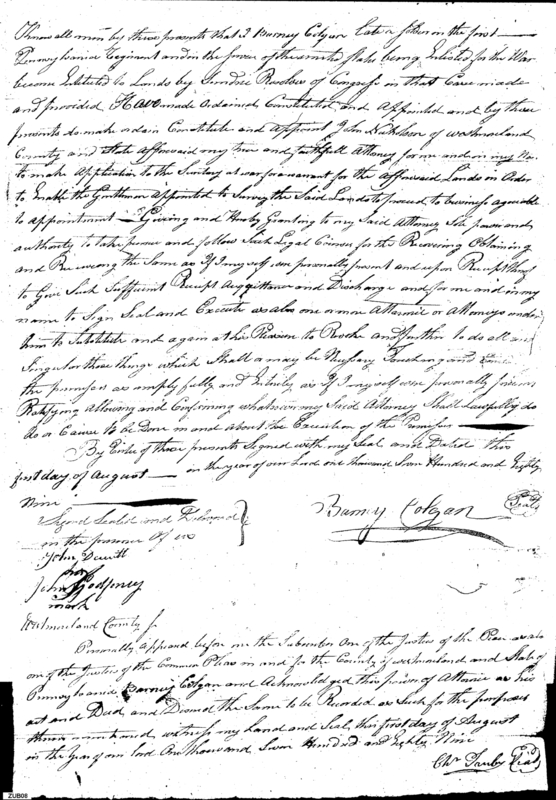 Know all men by these presents that I Barney Colgan late a soldier in the first
Pennsylvania Regiment and in the service of the united states being Enlisted for the War
become Entitled to Lands by Resolve of Congress in that Case made
and provided Have made Ordained Constituted and Appointed and by these
presents do make ordain Constitute and appoint John of westmorland
County and state afforesaid my true and faithfull Attorney for me and in my Name
to make application to the Secretary at war for a warrant for the afforesaid Lands in Order
to Enable the Gentlemen appointed to Survey the Said Lands to proceed to business agreeable
to appointment Giving and Hereby Granting to my Said Attorney Sole power and
authority to take pursue and follow Such Legal Courses for the Recovering Obtaining
and Receiving the Same as If I myself were personally present and upon Receipt thereof
to Give Such Sufficient Receipt Acquittance and Discharge and for me and in my
name to Sign Seal and Execute as also one or more Attornies or Attorneys under
him to Substitute and again at his Pleasure to Revoke and further to do all and
Singular those things which Shall or may be Touching and
the premises as amply fully and Entirely as If I myself were personally present
Ratifying Allowing and Confirming whatsoever my Said Attorney Shall Lawfully do
do or Cause to be Done in and about the Execution of the Premises
By Virtue of these presents Signed with my Seal and Dated this
first day of August in the year of our Lord one thousand Seven Hundred and Eighty
Nine
Signed Sealed and Delivered
in the presence of us
Barney Colgan Seal
John
his
John Godfrey
mark
Westmorland County Ss
Personally appeared before me the Subscriber One of the Justices of the Peace as also
one of the Justices of the Common Pleas in and for the County of westmorland and State of
Pennsylvania Barney Colgan and Acknowledged this power of Attornie as his
act and Deed and Desired the Same to be Recorded as Such for the purposes
therein mentioned witness my hand and Seal this first day of August
in the Year of our lord One thousand Seven Hundred and Eighty Nine
Chr Truby Seal
ZUB08